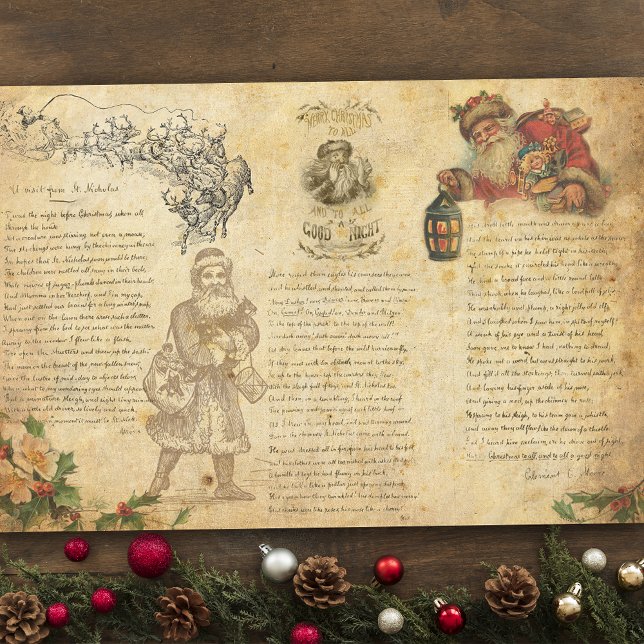 A visit from St. Nicholas
'Twas the night before Christmas, when all
through the house
Not a creature was stirring, not even a mouse;
The stockings were hung by the chimney with care
In hopes that St. Nicholas soon would be there;
The children were nestled all snug in their beds,
While visions of sugar-plums danced in their heads;
And Mamma in her 'kerchief, and I in my cap,
Had just settled our brains for a long winter's nap,
When out on the lawn there arose such a clatter,
I sprang from the bed to see what was the matter.
Away to the window I flew like a flash,
Tore open the shutters and threw up the sash.
The moon on the breast of the new-fallen snow,
Gave the lustre of mid-day to objects below,
When, what to my wondering eyes should appear,
But a miniature sleigh, and eight tiny reindeer,
With a little old driver, so lively and quick,
moment it must be St. Nick.
MERRY CHRISTMAS
TO ALL
AND TO ALL
A
GOOD NIGHT
More rapid than eagles his coursers they came,
And he whistled, and shouted, and called them by name;
"Now, Dasher! now, Dancer! now, Prancer and Vixen!
On, Comet! on, Cupid! on, Donder and Blitzen!
To the top of the porch! to the top of the wall!
Now dash away! dash away! dash away all!"
As dry leaves that before the wild hurricane fly,
When they meet with an obstacle, mount to the sky;
So up to the house-top the coursers they flew,
With the sleigh full of toys, and St. Nicholas too.
And then, in a twinkling, I heard on the roof
The prancing and pawing of each little hoof.
As I drew in my head, and was turning around,
Down the chimney St. Nicholas came with a bound.
He was dressed all in fur, from his head to his foot,
And his clothes were all tarnished with ashes and soot;
A bundle of toys he had flung on his back,
And he looked like a pedlar just opening his pack.
His eyes how they twinkled! his dimples how merry!
His cheeks were like roses, his nose like a cherry!
His droll little mouth was drawn up like a bow,
And the beard on his chin was as white as the snow;
The stump of a pipe he held tight in his teeth,
And the smoke it encircled his head like a wreath;
He had a broad face and a little round belly
That shook, when he laughed, like a bowl full of jelly.
He was chubby and plump, a right jolly old elf,
And I laughed when I saw him, in spite of myself;
A wink of his eye and a twist of his head,
Soon gave me to know I had nothing to dread;
He spoke not a word, but went straight to his work,
And fill'd all the stockings; then turned with a jerk,
And laying his finger aside of his nose,
And giving a nod, up the chimney he rose;
He sprang to his sleigh, to his team gave a whistle,
And away they all flew like the down of a thistle.
But I heard him exclaim, ere he drove out of sight,
Christmas to all, and to all a good night.
Clement C. Moore